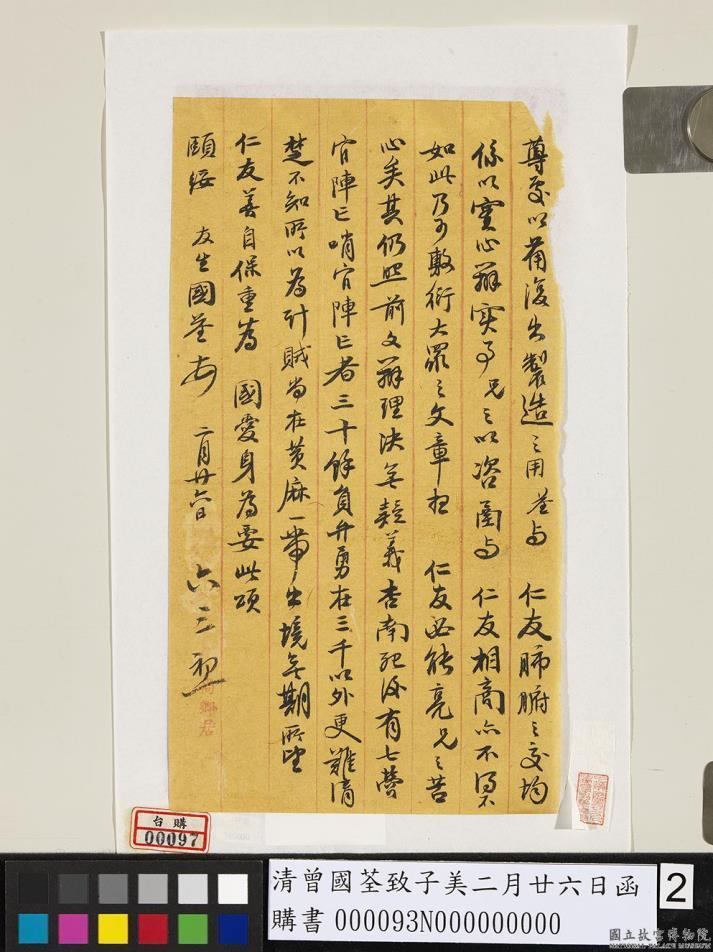 尊處以備後出製造之用荃與 仁友肺腑之交均
係以實心辦實事兄之以咨函與 仁友相商亦不得不
如此乃可敷衍大眾之文章想 仁友必能亮兄之苦
心矣其仍照前文辦理決無疑義杏南死後有七營
官陣亡哨官陣亡者三十餘員弁勇在三千以外更難清
楚不知所以為計賊尚在黃麻一帶出境無期所望
仁友善自保重為 國愛身為要此頌
頤綏 友生國荃 二月廿六日 六三
台購
00097
清曾國荃致子美二月廿六日函
購書 000093N000000000
2
國立故宮博物院
NATIONAL PALACE MUSEUM